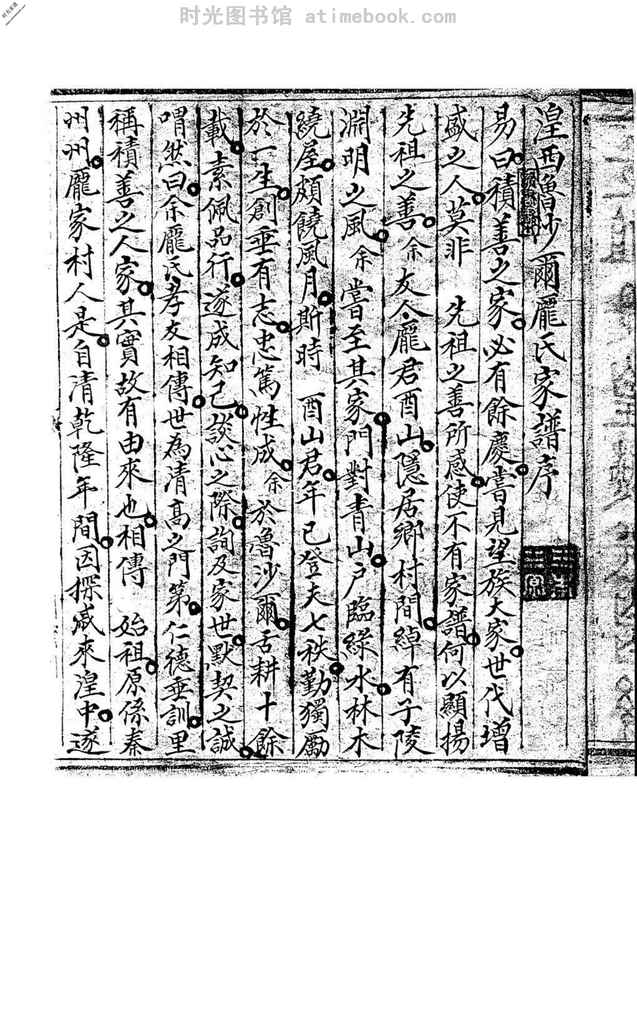 时光图书馆 atimebook.com
湟西魯沙爾龐氏家譜序
易曰積善之家必有餘慶嘗見望族大家世代增
盛之人莫非 先祖之善所感使不有家譜何以顯揚
先祖之善余友人龐君酉山隱居鄉村間綽有子陵
淵明之風余嘗至其家門對青山户臨綠水林木
繞屋頗饒風月斯時 酉山君年已登夫七秩勤獨勵
於一生創垂有志忠篤性成余於魯沙爾舌耕十餘
載素佩品行遂成知己談心之際詢及家世默契之誠
喟然曰余龐氏孝友相傳世為清高之門第仁德垂訓里
稱積善之人家其實故有由來也相傳 始祖原係秦
州州龐家村人是自清乾隆年間因探戚來湟中遂